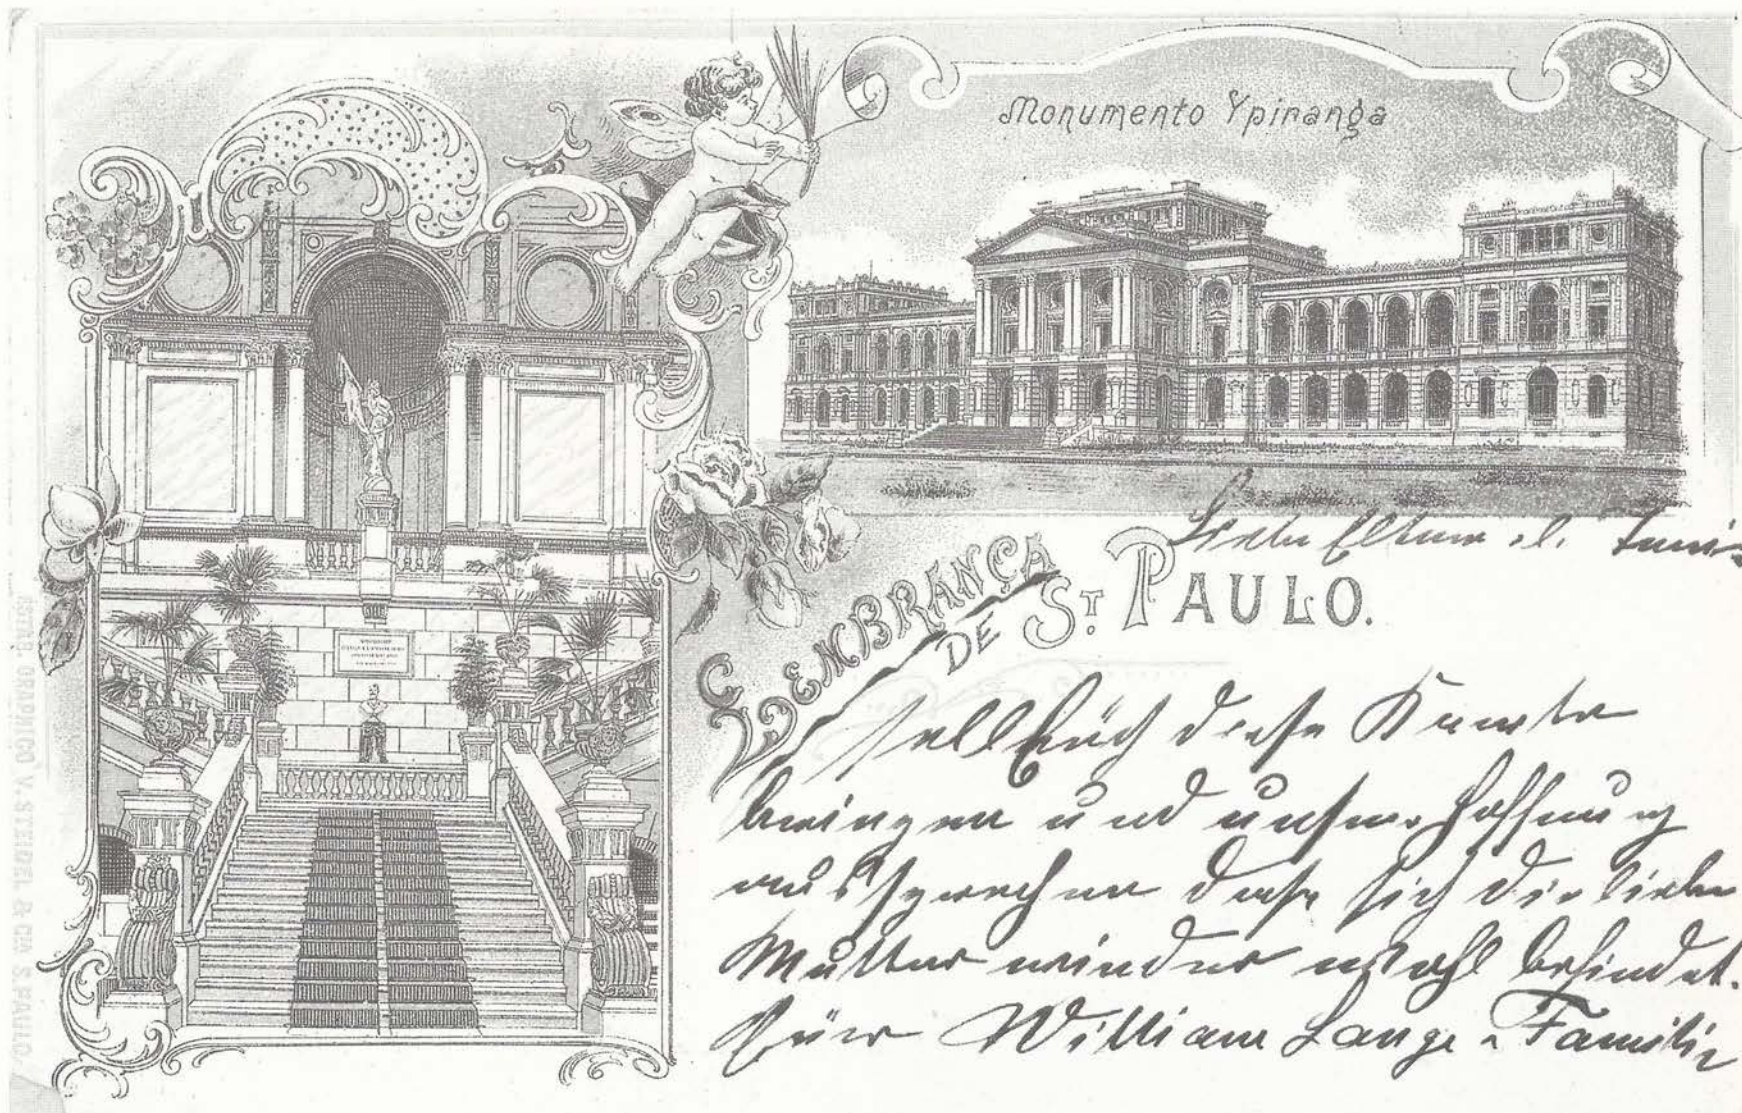 Monumento Ypiranga
LEMBRANÇA
DE ST. PAULO.
Liebe Eltern u.
soll Euch diese Karte
bringen und unsere Hoffnung
aussprechen dass sich die liebe
Mutter wieder wohl befindet.
Euer William Lange u Familie
ESTAB. GRAPHICO V. STEIDEL & CIA S. PAULO.